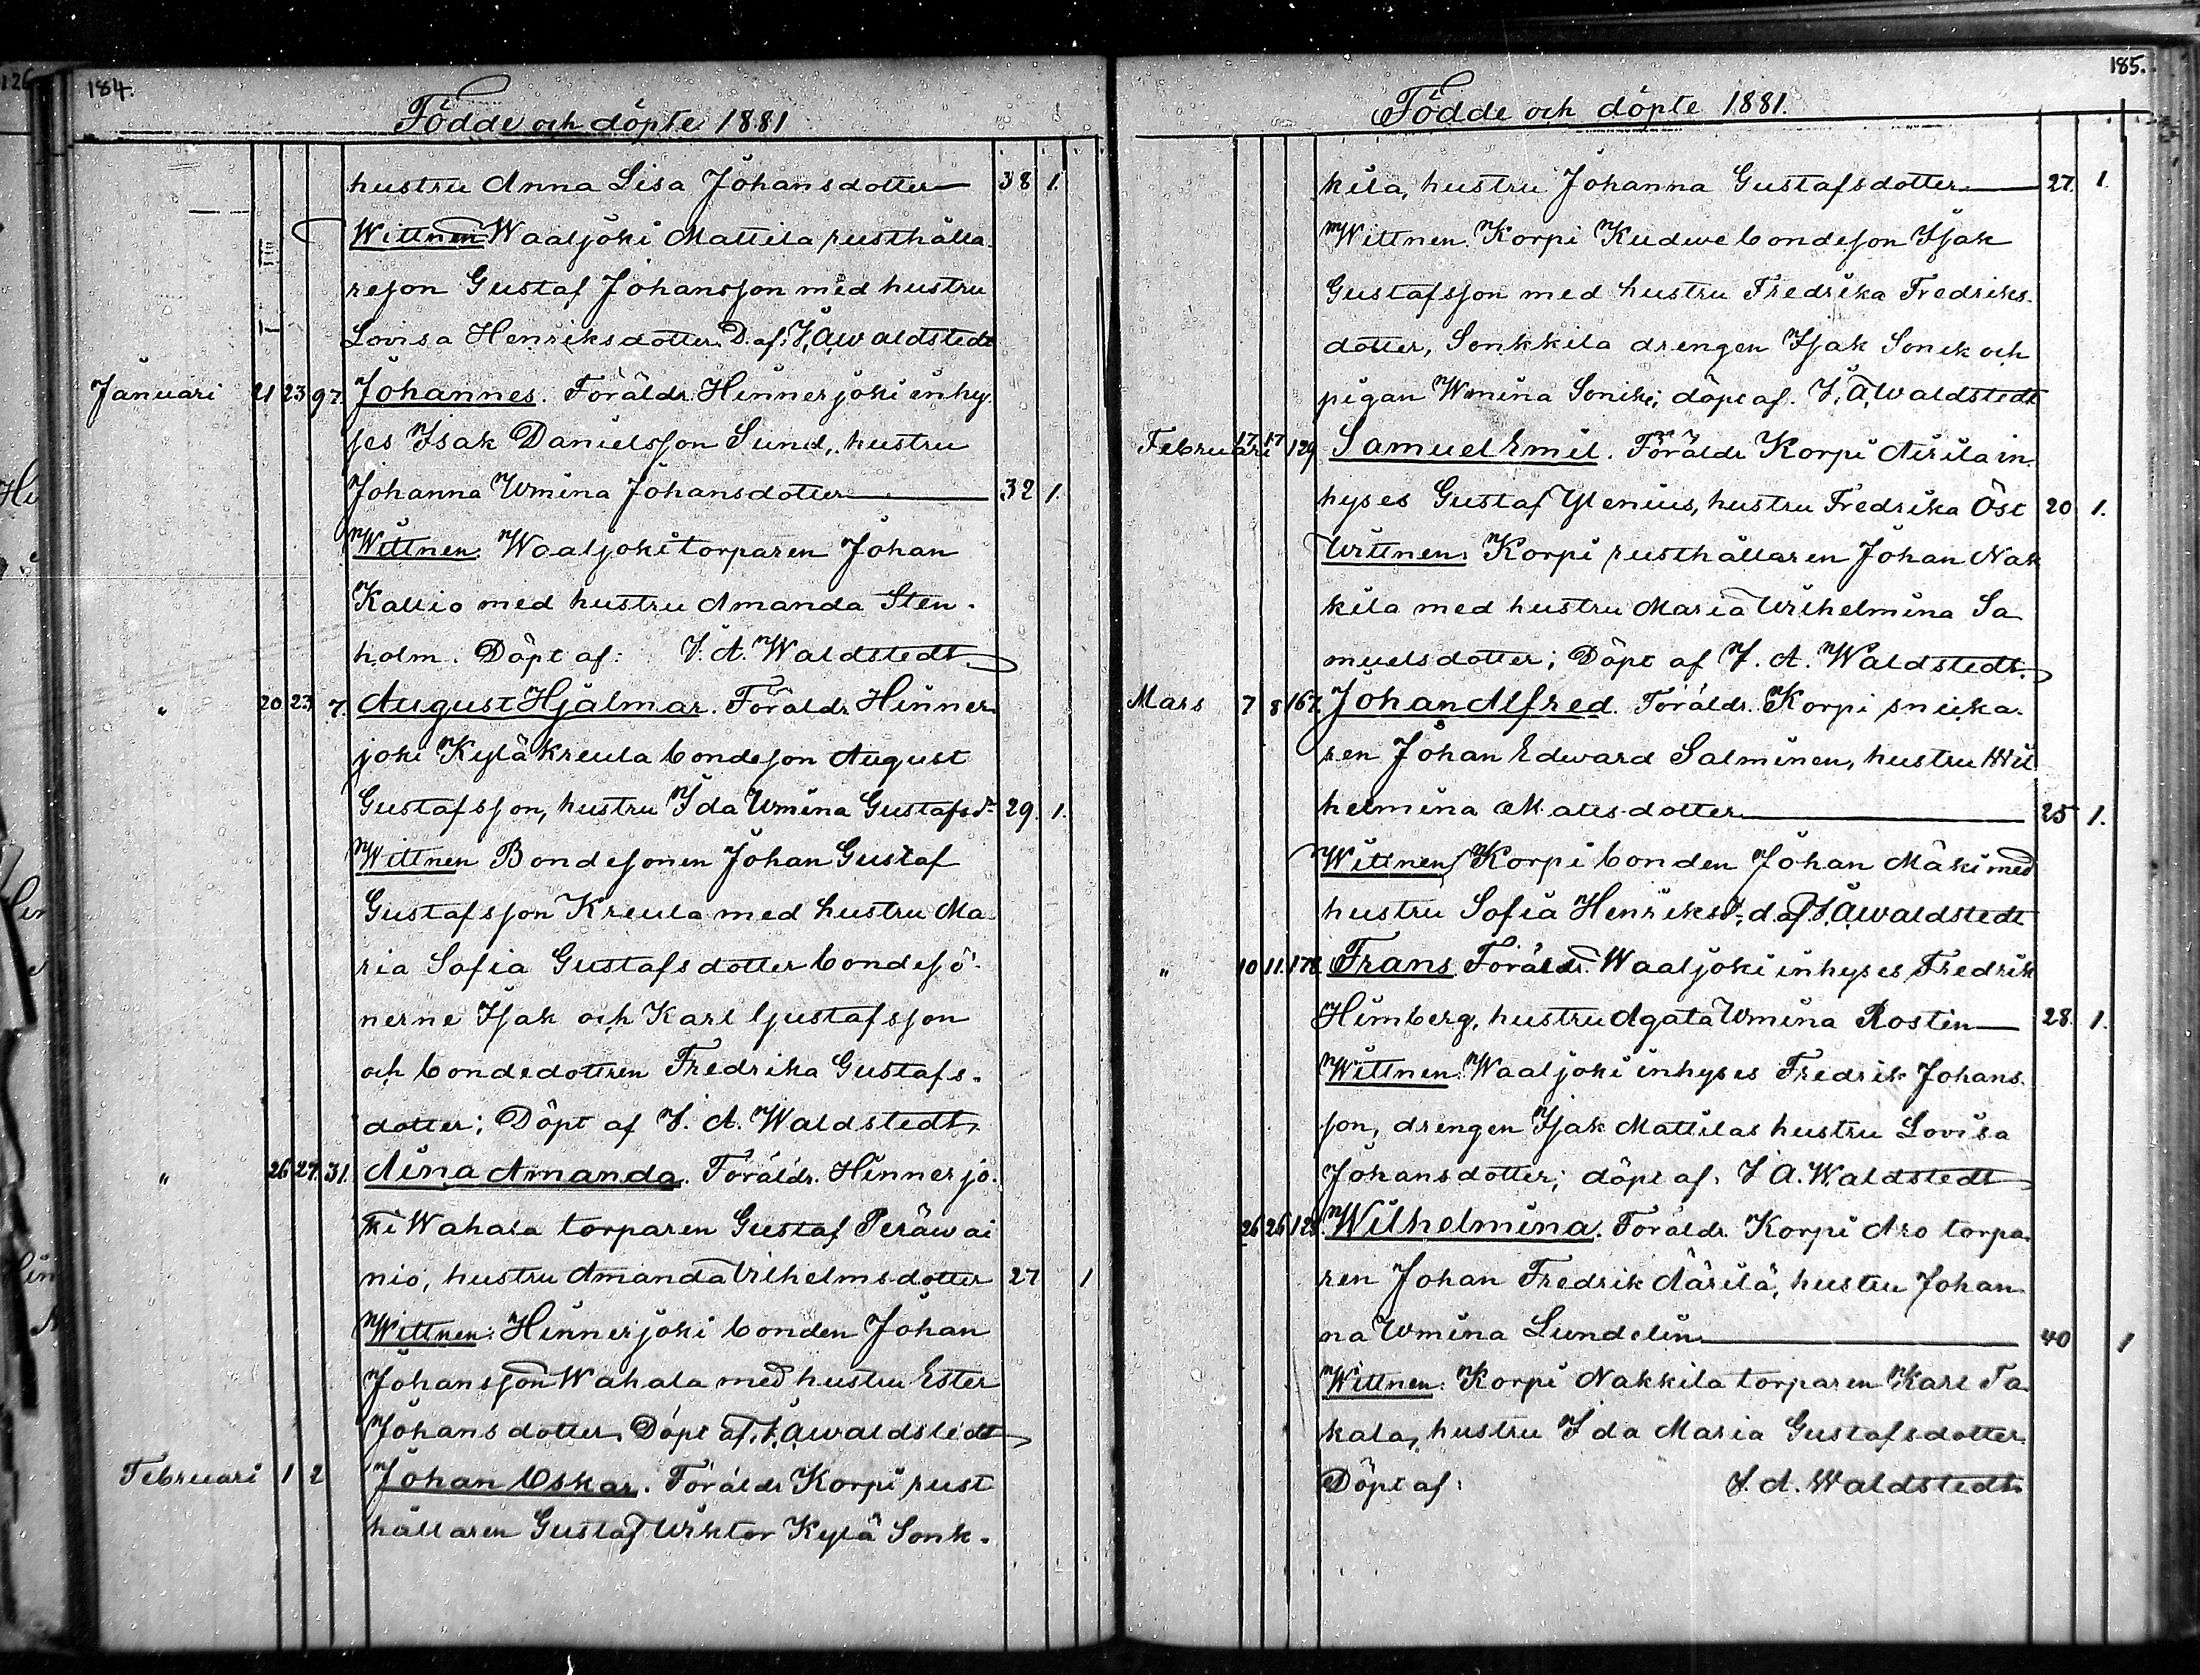 184.
Födde och döpte 1881
hustru Anna Lisa Johansdotter 38 1.
Wittnen Waaljoki Mattila rusthålla
reson Gustaf Johansson med hustru
Lovisa Henriksdotter. D. af. I. A. Waldstedt
Januari 21 23 97. Johannes. Föräldr. Hinnerjoki inhy
ses Isak Danielsson Sund, hustru
Johanna Wmina Johansdotter 32 1.
Wittnen. Waaljoki torparen Johan
Kallio med hustru Amanda Sten-
holm. Döpt af: I. A. Waldstedt
" 20 23 7. August Hjalmar. Föräldr. Hinner
joki Kyläkreula bondeson August
Gustafsson, hustru Ida Wmina Gustafsdr 29. 1.
Wittnen Bondesonen Johan Gustaf
Gustafsson Kreula med hustru Ma
ria Sofia Gustafsdotter bondesö-
nerne Isak och Karl Gustafsson
och bondedottren Fredrika Gustafs-
dotter; Döpt af I. A. Waldstedt.
" 26 27. 31. Aina Amanda. Föräldr. Hinnerjo-
ki Wahala torparen Gustaf Peräwai
nio, hustru Amanda Wilhelmsdotter 27 1
Wittnen: Hinnerjoki bonden Johan
Johansson Wahala med hustru Ester
Johansdotter. Döpt af. I. A. Waldstedt
Februari 1 2 Johan Oskar. Föräldr. Korpi rust
hållaren Gustaf Wiktor Kylä Sonk-
185.
Födde och döpte 1881.
kila, hustru Johanna Gustafsdotter 27. 1.
Wittnen. Korpi Kudwe bondeson Isak
Gustafsson med hustru Fredrika Fredriks-
dotter, Sonkkila drengen Isak Sonck och
pigan Wmina Sonck; döpt af. I. A. Waldstedt
Februari 17 17 129 Samuel Emil. Föräldr. Korpi Airila in
hyses Gustaf Ylenius, hustru Fredrika Öst 20 1.
Wittnen: Korpi rusthållaren Johan Nak
kila med hustru Maria Wilhelmina Sa
muelsdotter; Döpt af I. A. Waldstedt.
Mars 7 8 167. Johan Alfred. Föräldr. Korpi snicka-
ren Johan Edward Salminen, hustru Wil
helmina Matsdotter 25 1.
Wittnen Korpi bonden Johan Mäki med
hustru Sofia Henriksdr, d. af. I. A. Waldstedt
" 10 11. 178. Frans Föräldr. Waaljoki inhyses Fredrik
Himberg, hustru Agata Wmina Rostin 28. 1.
Wittnen. Waaljoki inhyses Fredrik Johans-
son, drengen Isak Mattilas hustru Lovisa
Johansdotter; döpt af. I A. Waldstedt
26 26 128. Wilhelmina. Föräldr. Korpi Aro torpa-
ren Johan Fredrik Äärilä, hustru Johan
na Wmina Lundelin 40 1
Wittnen. Korpi Nakkila torparen Karl Ta
kala, hustru Ida Maria Gustafsdotter
Döpt af: I. A. Waldstedt.